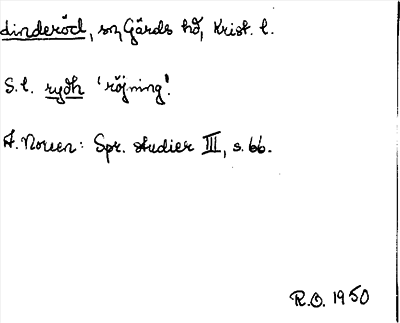 Linderöd, sn, Gärds hd, Krist. l.
S. l. rydh 'röjning'.
A. Noreen: Spr. studier III, s. 66.
R.O. 1950